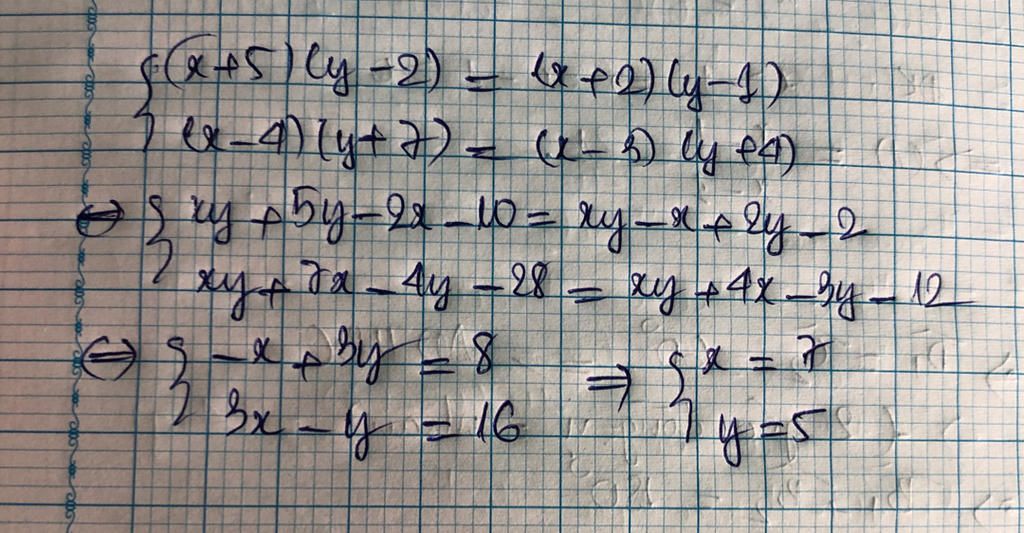 { (x+5)(y-2) = (x+2)(y-1)
(x-4)(y+7) = (x-3)(y+4)
⇔ { xy+5y-2x-10 = xy-x+2y-2
xy+7x-4y-28 = xy+4x-3y-12
⇔ { -x+3y = 8 ⇒ { x = 7
3x-y = 16 y = 5